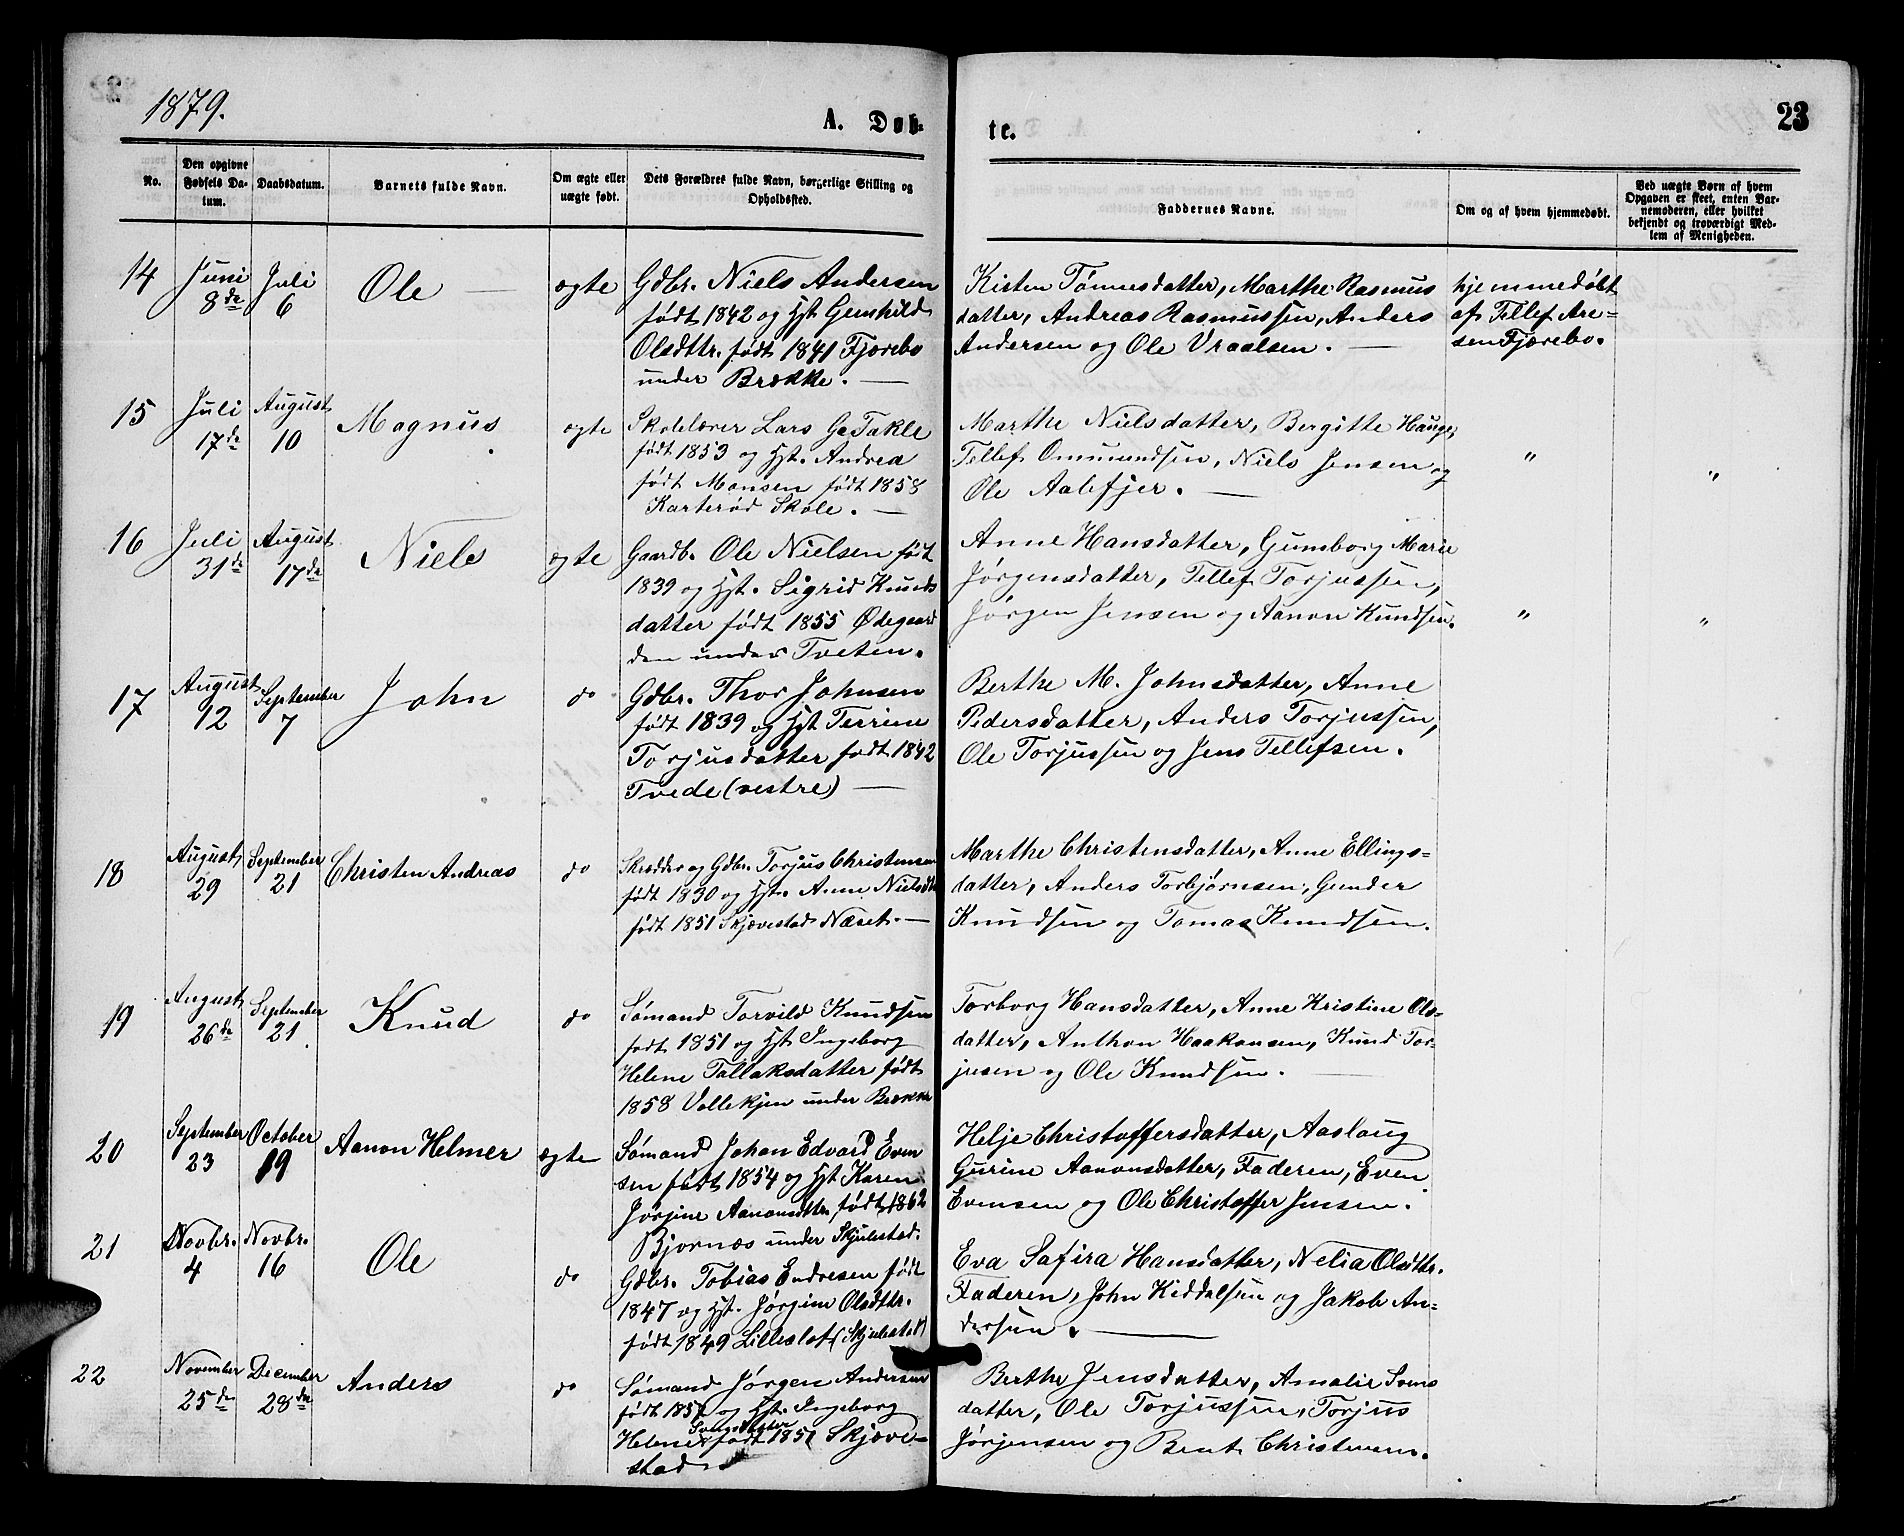 1879.
A. Døb-
te.
23
No.
Den opgivne Fødsels Da-tum.
Daabsdatum.
Barnets fulde Navn.
Om ægte eller uægte født.
Dets Forældres fulde Navn, borgerlige Stilling og Opholdssted.
Faddernes Navne.
Om og af hvem hjemmedøbt.
Ved uægte Børn af hvem Opgaven er skeet, enten Bar-nemoderen, eller hvilket bekjendt og troværdigt Med-lem af Menigheden.
14
Juni 8de
Juli 6
Ole
ægte
Gdbr. Niels Andersen
født 1842 og Hst Gunhild
Olsdttr. født 1841 Fjærebo
under Brække.
Kirsten Tønnesdatter, Marthe Rasmus
datter, Andreas Rasmussen, Anders
Andersen og Ole Vraalsen.
hjemmedøbt
af Tellef Are-
sen Fjærebo.
15
Juli 17de
August 10
Magnus
ægte
Skolelærer Lars G. Takle
født 1853 og Hst. Andrea
født Monsen født 1858
Karterød Skole.
Marthe Nielsdatter, Bergitte Hauge,
Tellef Ommundsen, Niels Jensen og
Ole Aalefjer.
"
"
16
Juli 31de
August 17de
Niels
ægte
Gaardb. Ole Nielsen født
1839 og Hst. Sigrid Knuds
datter født 1855 Ødegaard
den under Tveten.
Anne Hansdatter, Gunborg Marie
Jørgensdatter, Tellef Torjussen,
Jørgen Jensen og Aanon Knudsen.
"
"
17
August 12
September 7
John
do
Gdbr. Thor Johnsen
født 1839 og Hst Terrine
Torjusdatter født 1842
Tvede (vestre)
Berthe M. Johnsdatter, Anne
Pedersdatter, Anders Torjussen,
Ole Torjussen og Jens Tellefsen.
18
August 29
September 21
Christen Andreas
do
Skrædder og Gdbr. Torjus Christensen
født 1830 og Hst. Anne Nielsdtr
født 1851 Skjævestad Næset.
Marthe Christensdatter, Anne Ellings-
datter, Anders Torbjørnsen, Gunder
Knudsen og Tomas Knudsen.
19
August 26de
September 21
Knud
do
Sømand Torvild Knudsen
født 1851 og Hst Ingeborg
Helene Tallaksdatter født
1858 Vollekjen under Brække
Torborg Hansdatter, Anne Kristine Ols-
datter, Anthon Haakonsen, Knud Tor-
jusen og Ole Knudsen.
20
September 23
October 19
Aanon Helmer
ægte
Sømand Johan Edvard Even
sen født 1854 og Hst Karen
Jørgine Aanonsdtr. født 1862
Bjornæs under Skjulestad.
Helje Christoffersdatter, Aaslaug
Gurine Aanonsdatter, Faderen, Even
Evensen og Ole Christoffer Jensen.
21
Novbr. 4
Novbr. 16
Ole
do
Gdbr. Tobias Endresen født
1847 og Hst. Jørgine Olsdttr.
født 1849 Lilleslot (Skjulestad)
Eva Safira Hansdatter, Nelia Olsdttr.
Faderen, John Kiddelsen og Jakob An-
dersen.
22
November 25de
December 28de
Anders
do
Sømand Jørgen Andersen
født 185 og Hst. Ingeborg
Helene Svensdatter født 1851 Skjæve-
stad
Berthe Jensdatter, Amalie Svens
datter, Ole Torjussen, Torjus
Jørgensen og Bent Christensen.